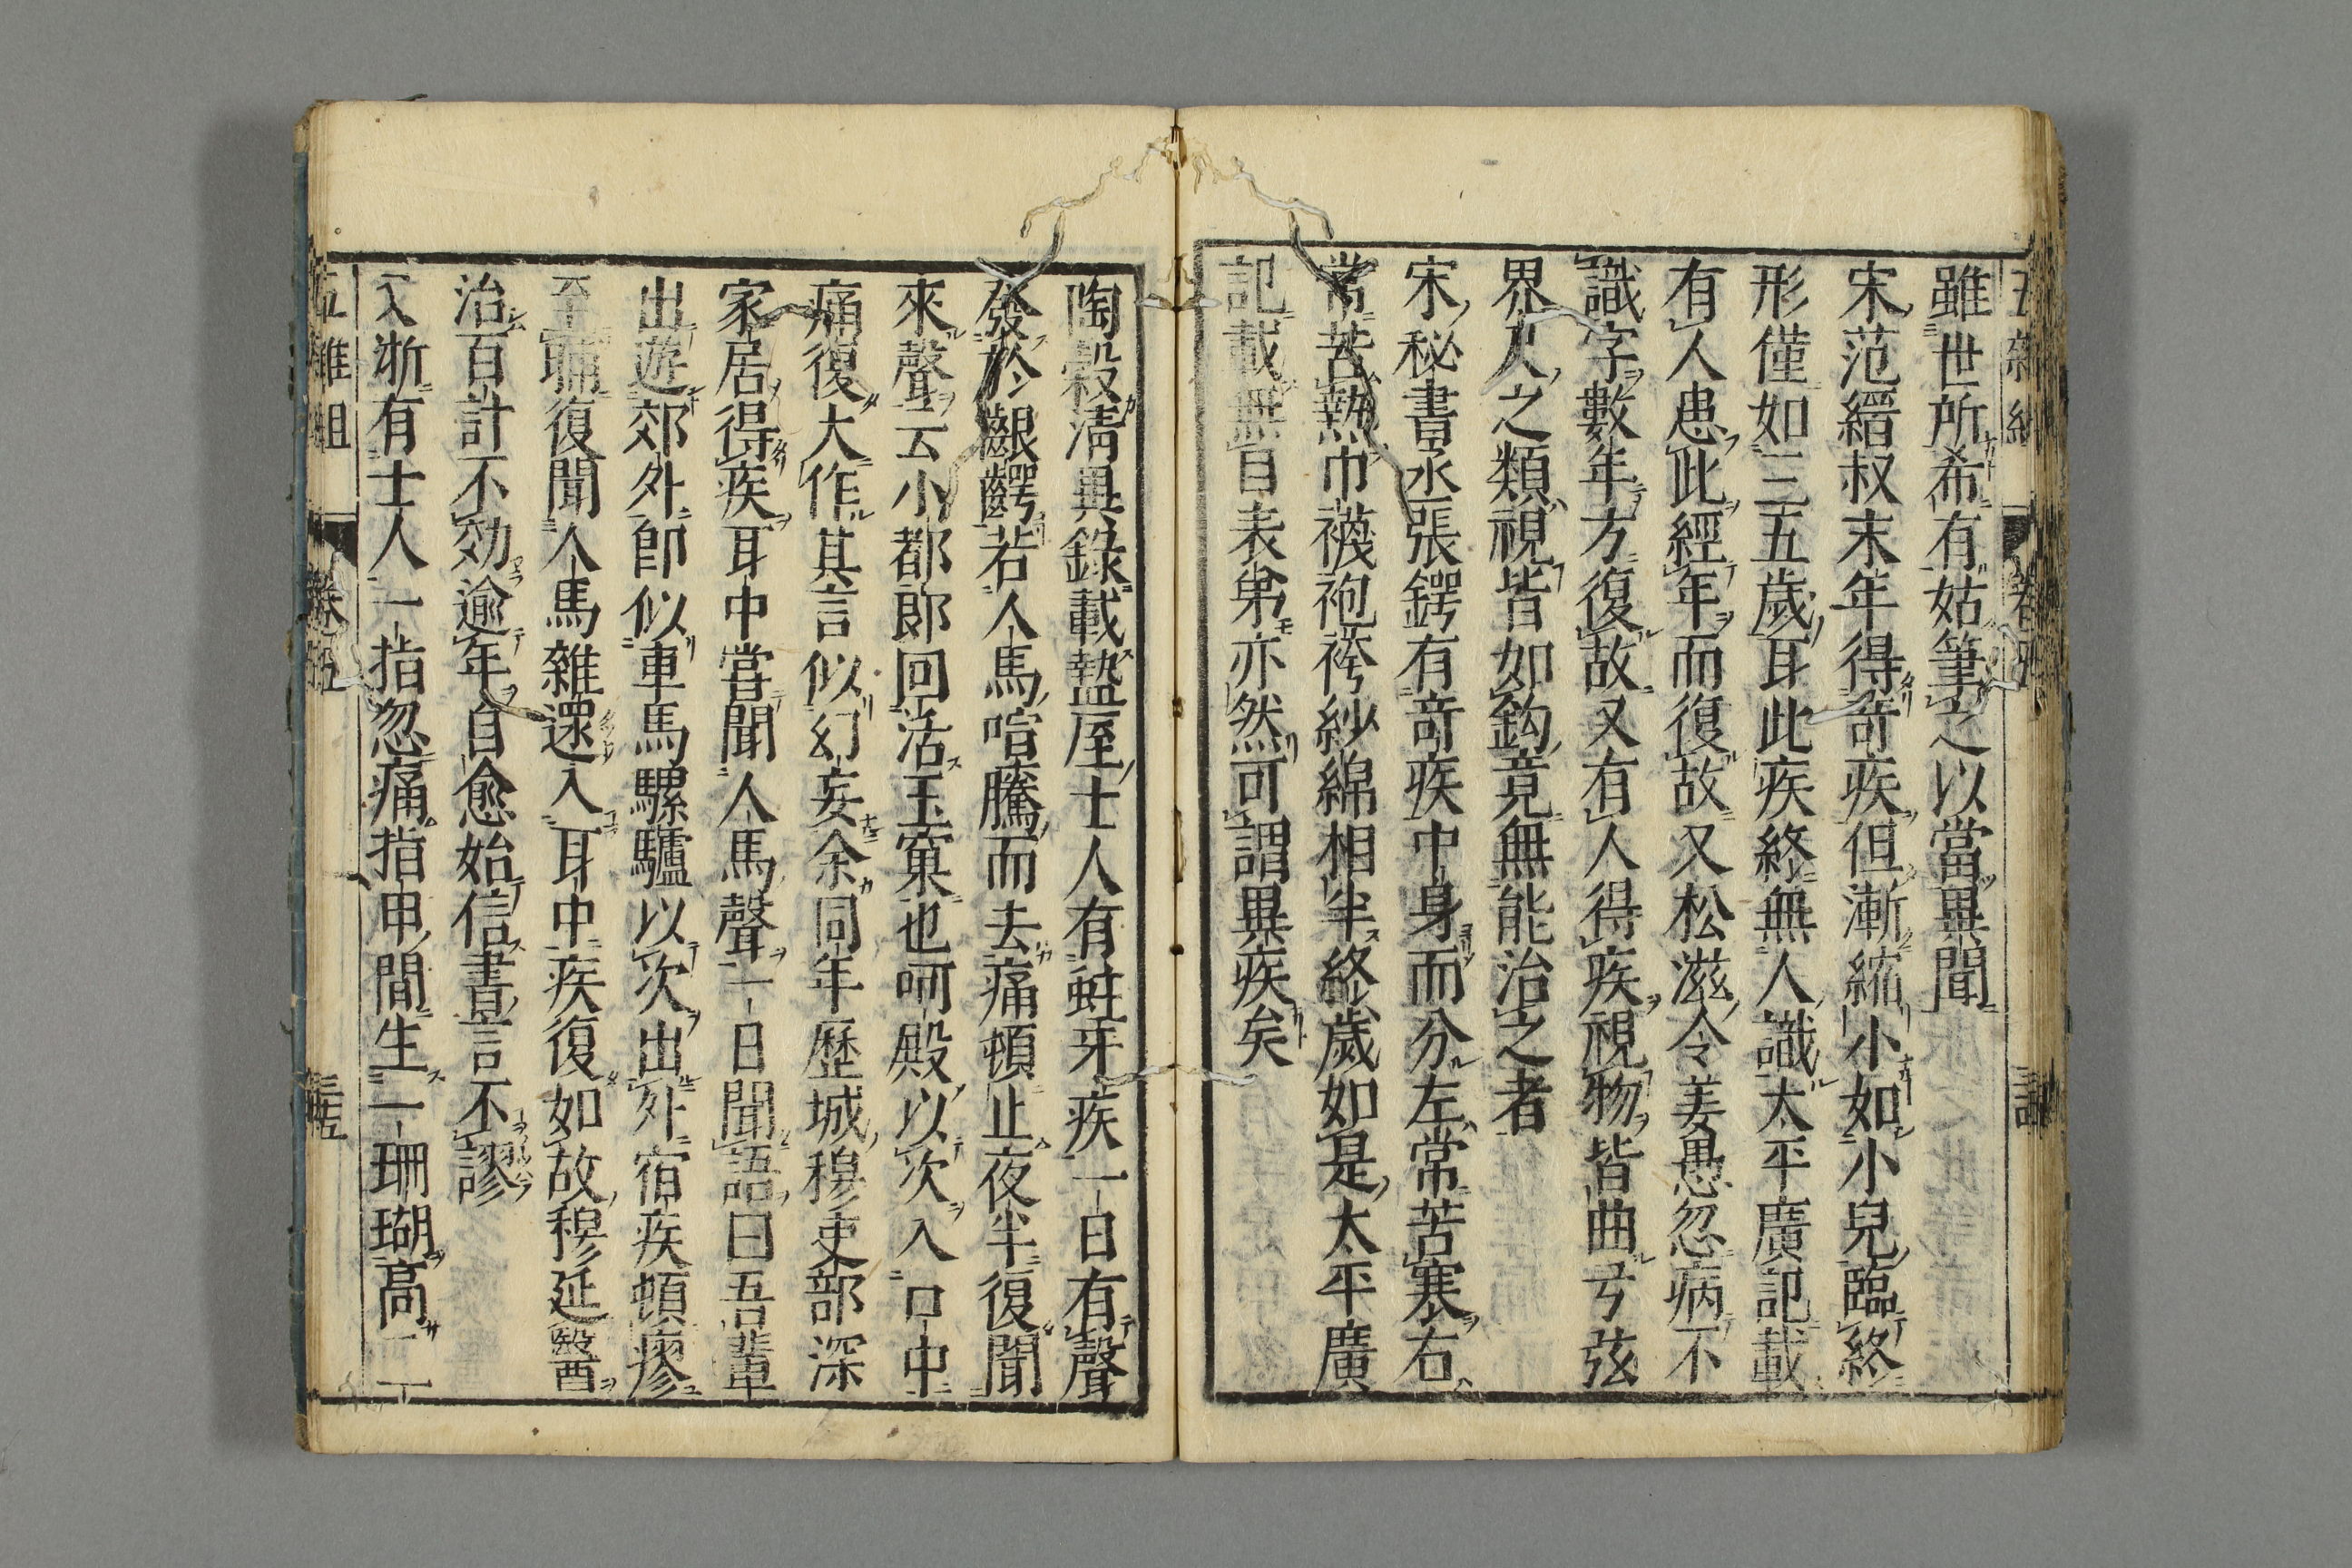 雖世所希有姑筆之以當異聞
宋范縉叔末年得奇疾但漸縮小如小兒臨終
形僅如三五歲耳此疾終無人識太平廣記載
有人患此經年而復故又松滋令姜愚忽病不
識字數年方復故又有人得疾視物皆曲弓弦
界尺之類視皆如鈎竟無能治之者
宋秘書丞張鍔有奇疾中身而分左常苦寒右
常苦熱巾襪袍袴紗綿相半終歲如是太平廣
記載無目表弟亦然可謂異疾矣
陶穀清異錄載盩厔士人有蛀牙疾一日有聲
發於齦齶若人馬喧騰而去痛頓止夜半復聞
來聲云小都郎回活玉窠也呵殿以次入口中
痛復大作其言似幻妄余同年歷城穆吏部深
家居得疾耳中嘗聞人馬聲一日聞語曰吾輩
出遊郊外即似車馬騾驢以次出外宿疾頓瘳
至晡復聞人馬雜遝入耳中疾復如故穆延醫
治百計不効逾年自愈始信書言不謬
入浙有士人一指忽痛指甲間生一珊瑚高二
五雜組 卷五